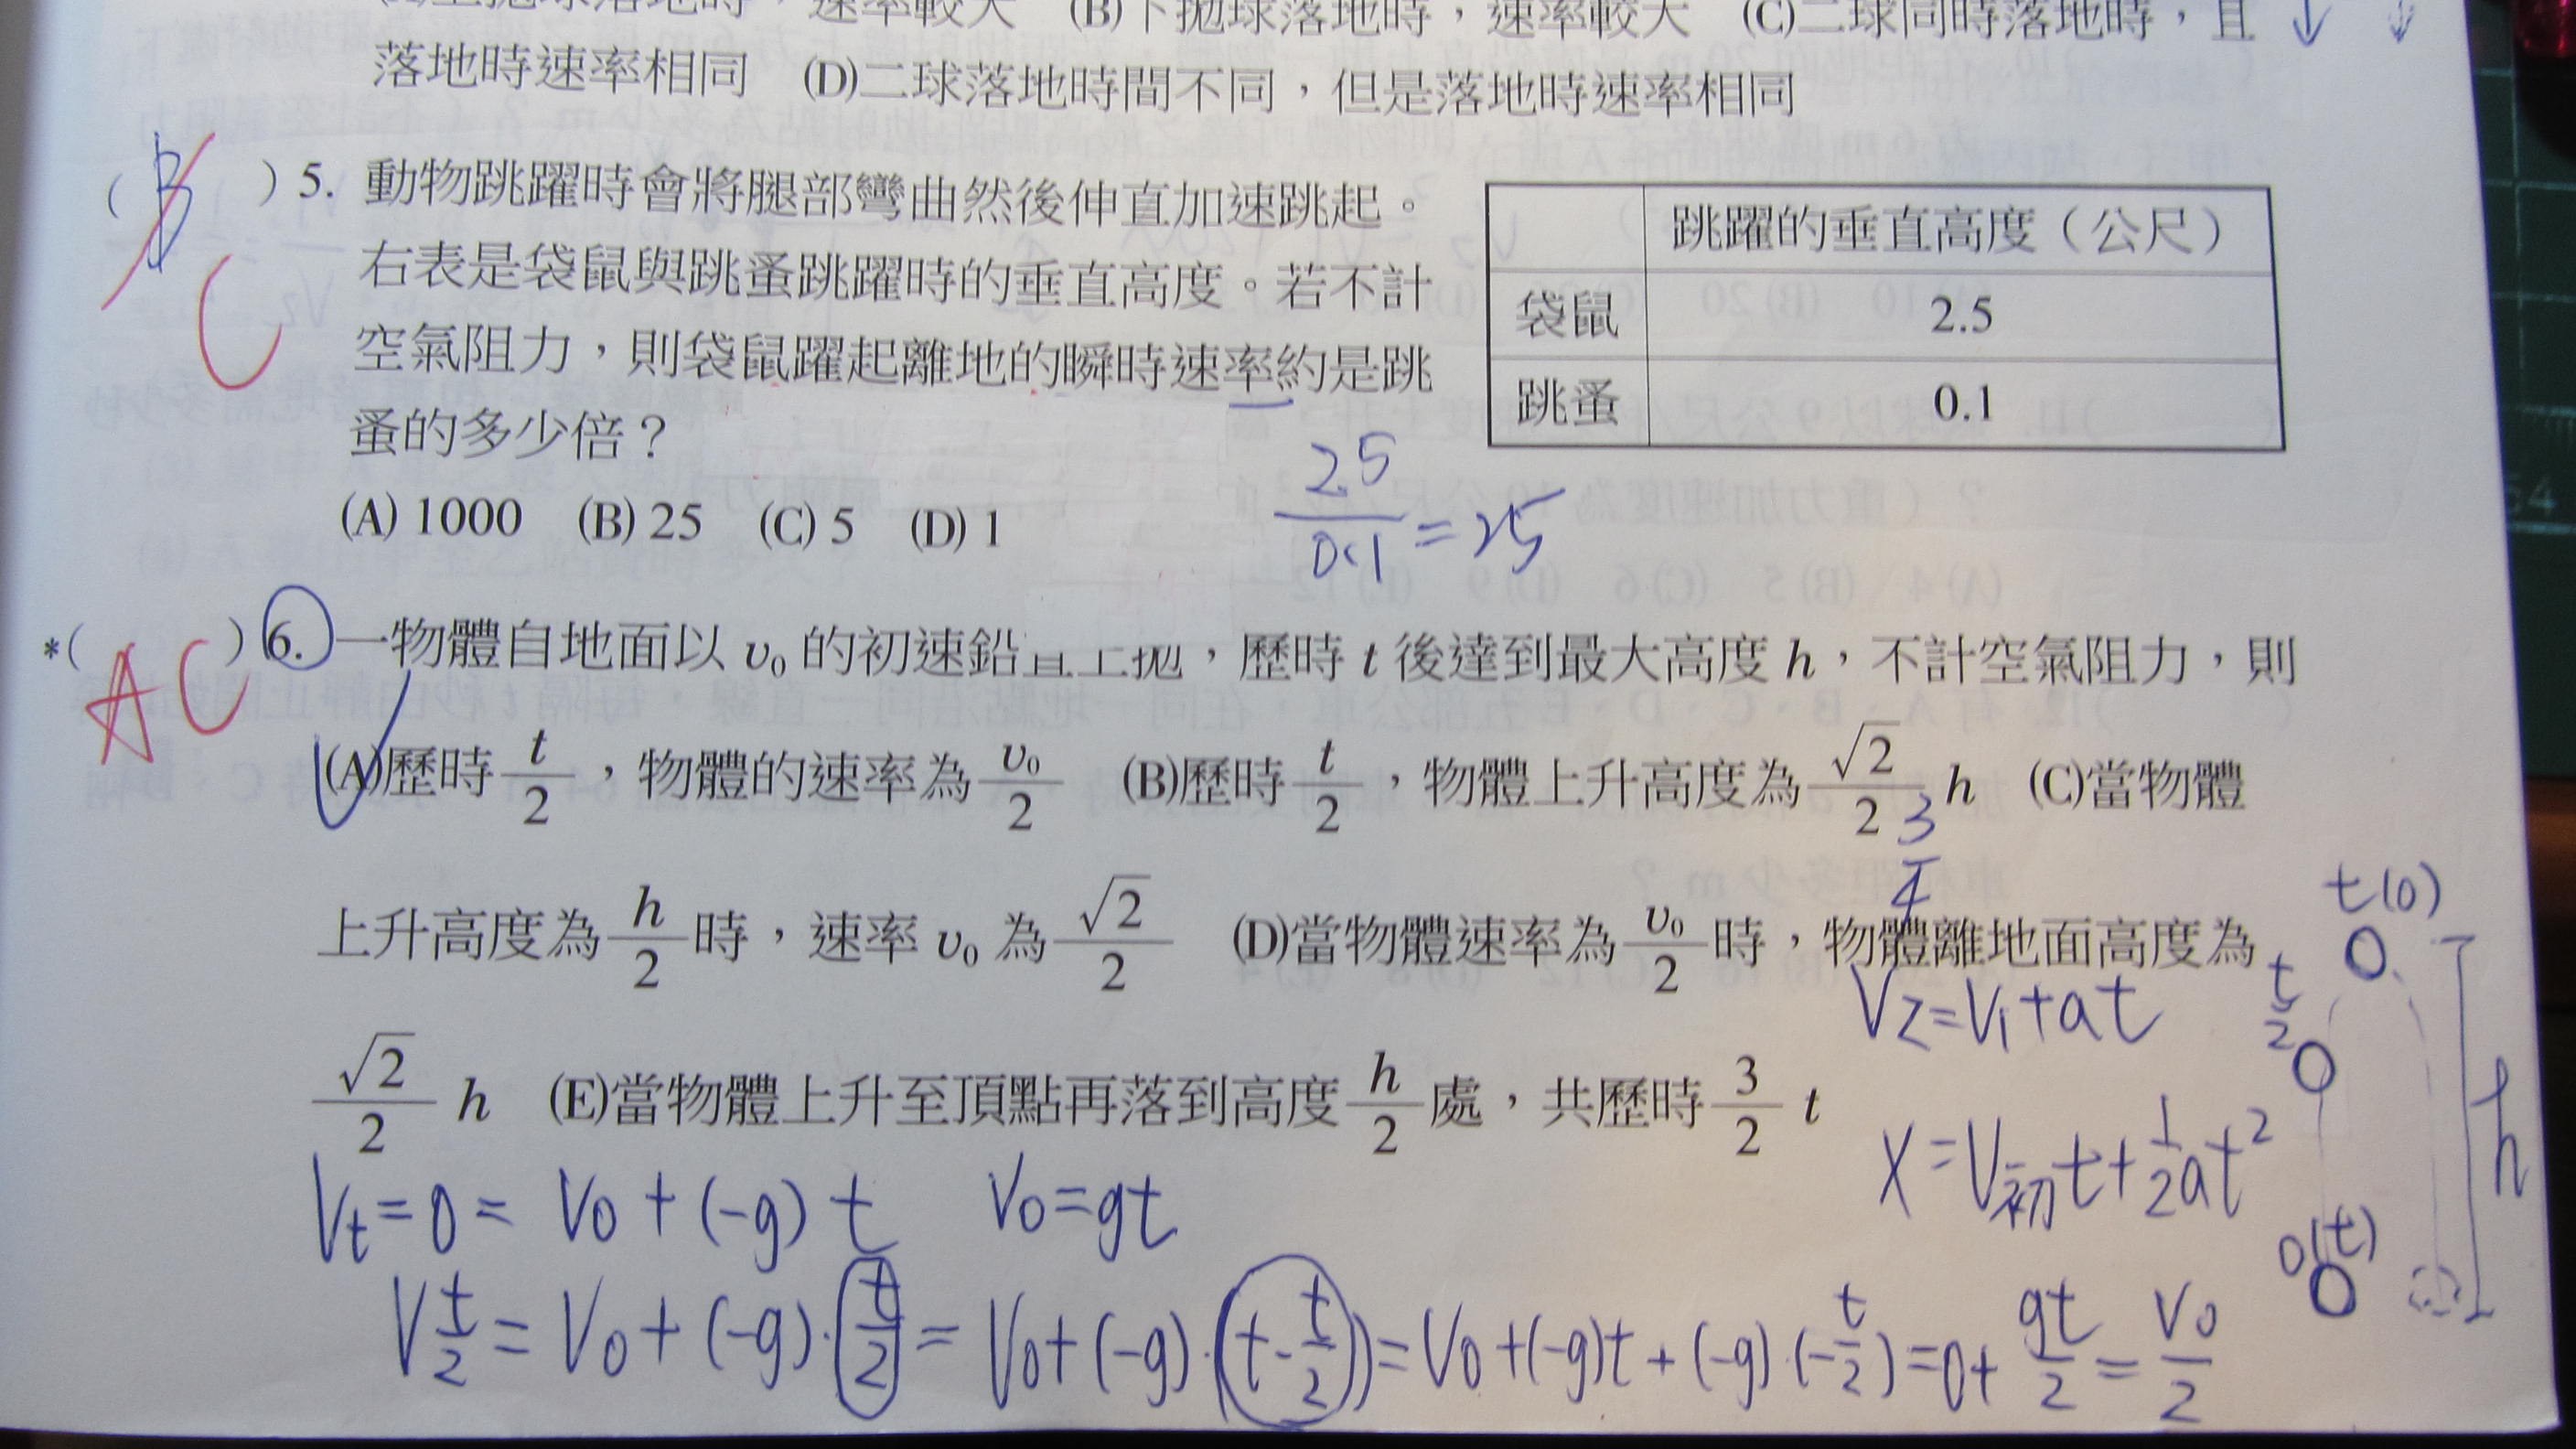 上拋球落地時，速率較大 (B)下拋球落地時，速率較大 (C)二球同時落地時，且
落地時速率相同 (D)二球落地時間不同，但是落地時速率相同
(B) 5. 動物跳躍時會將腿部彎曲然後伸直加速跳起。
C
右表是袋鼠與跳蚤跳躍時的垂直高度。若不計
空氣阻力，則袋鼠躍起離地的瞬時速率約是跳
蚤的多少倍？
(A) 1000 (B) 25 (C) 5 (D) 1
跳躍的垂直高度（公尺）
袋鼠 2.5
跳蚤 0.1
2.5/0.1 = 25
*( AC ) 6. 一物體自地面以 v₀ 的初速鉛直上拋，歷時 t 後達到最大高度 h，不計空氣阻力，則
(A)歷時 t/2，物體的速率為 v₀/2 (B)歷時 t/2，物體上升高度為 √2/2 h (C)當物體
3/4
上升高度為 h/2 時，速率 v₀ 為 √2/2 (D)當物體速率為 v₀/2 時，物體離地面高度為
√2/2 h (E)當物體上升至頂點再落到高度 h/2 處，共歷時 3/2 t
V2=V1+at
X=V初t+1/2at²
t(0)
t/2
h
0(t)
Vt=0=V0+(-g)t V0=gt
Vt/2=V0+(-g)·t/2=V0+(-g)·(t-t/2)=V0+(-g)t+(-g)·(-t/2)=0+gt/2=V0/2